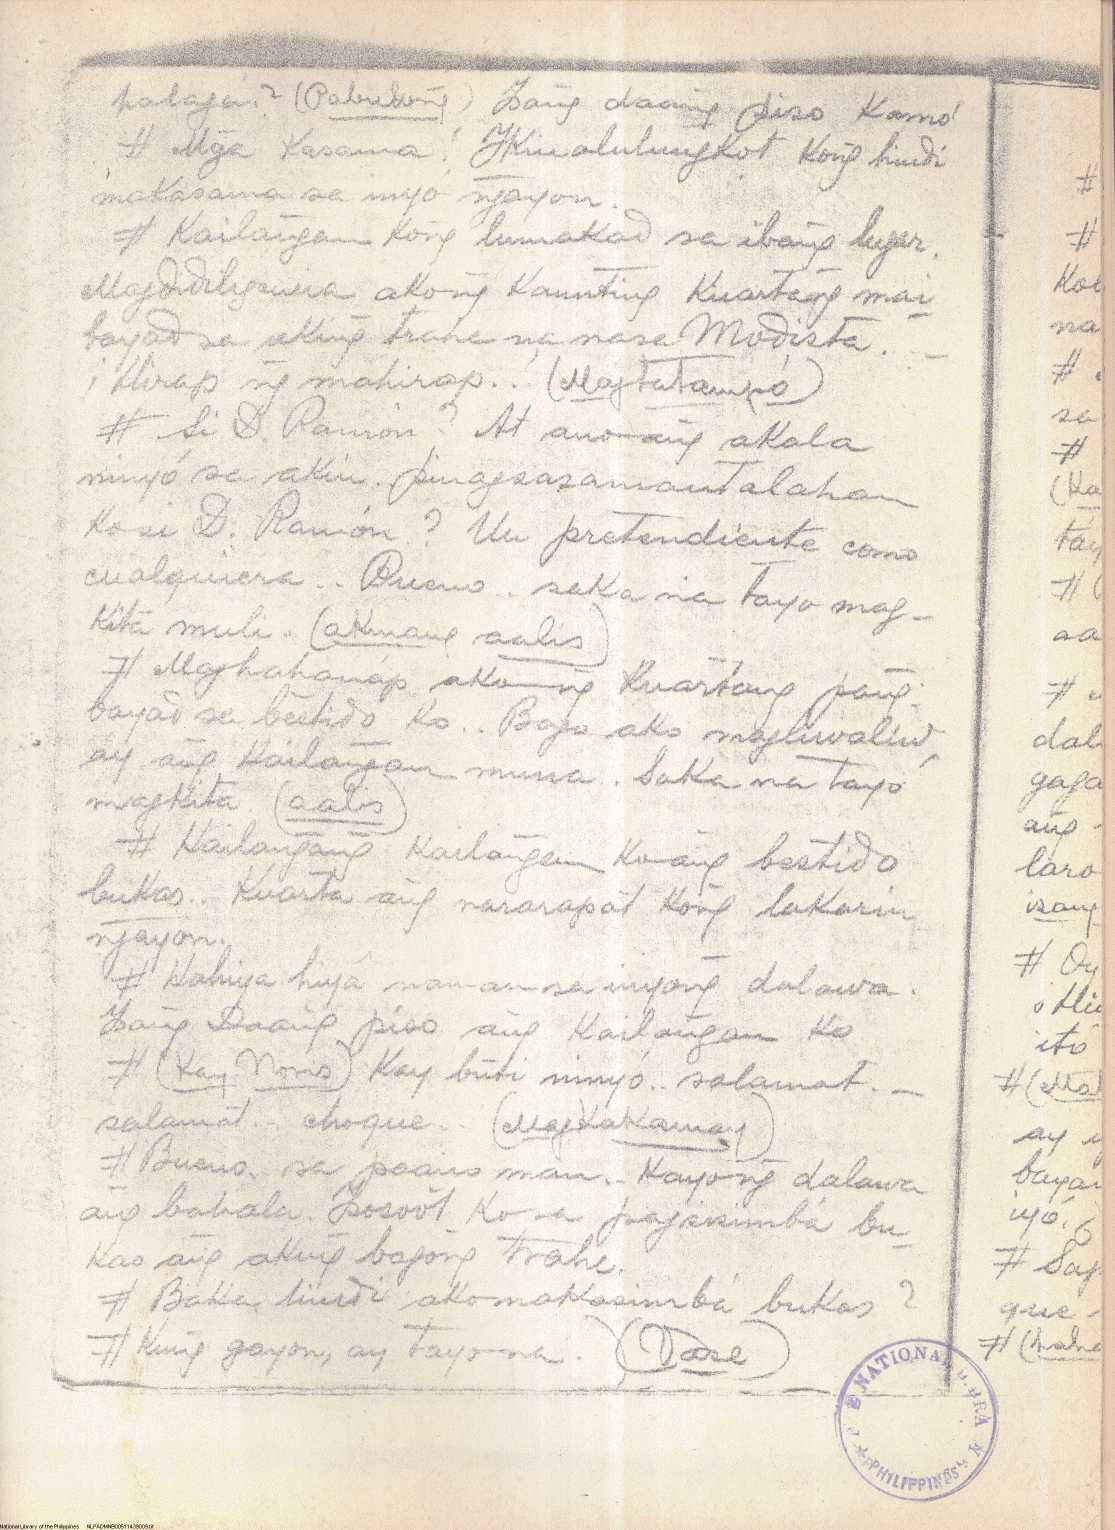 palagá? (Pabulóng) Isang daang piso kamó
# Mga Kasama! Ikinalulungkot kong hindi
makasama sa inyó ngayon.
# Kailangan kong lumakad sa ibang lugar.
Magdidiligencia akong kaunting kuartang mai-
bayad sa aking trahe na nasa Modista. -
¡Hirap ng mahirap..! (Magtatampó)
# Si D. Ramón? At ano ang akala
ninyó sa akin. pinagsasamantalahan
ko si D. Ramón? Un pretendiente como
cualquiera.. Bueno.. saka na tayo mag-
kita muli. (akmang aalis)
# Maghahanáp akong kuartang pang-
bayad sa bestido ko.. Bago ako magliwaliw,
ay ang kailangan muna. Saka na tayo
magkita. (aalis)
# Kailangang kailangan ko ang bestido
bukas.. Kuarta ang nararapat kong lakarin
ngayon.
# Nahiya hiyá naman sa inyong dalawa.
Isang Daang piso ang kailangan ko
# (Kay Noris) Kay buti ninyó.. salamat. -
salamat... choque.. (Magkakamay)
# Bueno. sa paano man.. Kayong dalawa
ang bahala. Isosoot ko sa pagsisimbá bu-
kas ang aking bagong trahe.
# Baka hindi ako makasimbá bukas?
# Kung gayon, ay tayo na. (Vase)
#
#
Ko
na
#
sa
#
(Ha
tay
# (
aa
#
dal
gaga
ang
laro
isang
# Oy
¡Hi
itó
# (Ma
ay
bayan
iyó.
# Sag
que
#
NATIONAL LIBRARY
PHILIPPINES
National Library of the Philippines NLPADMNB00511439009.tif